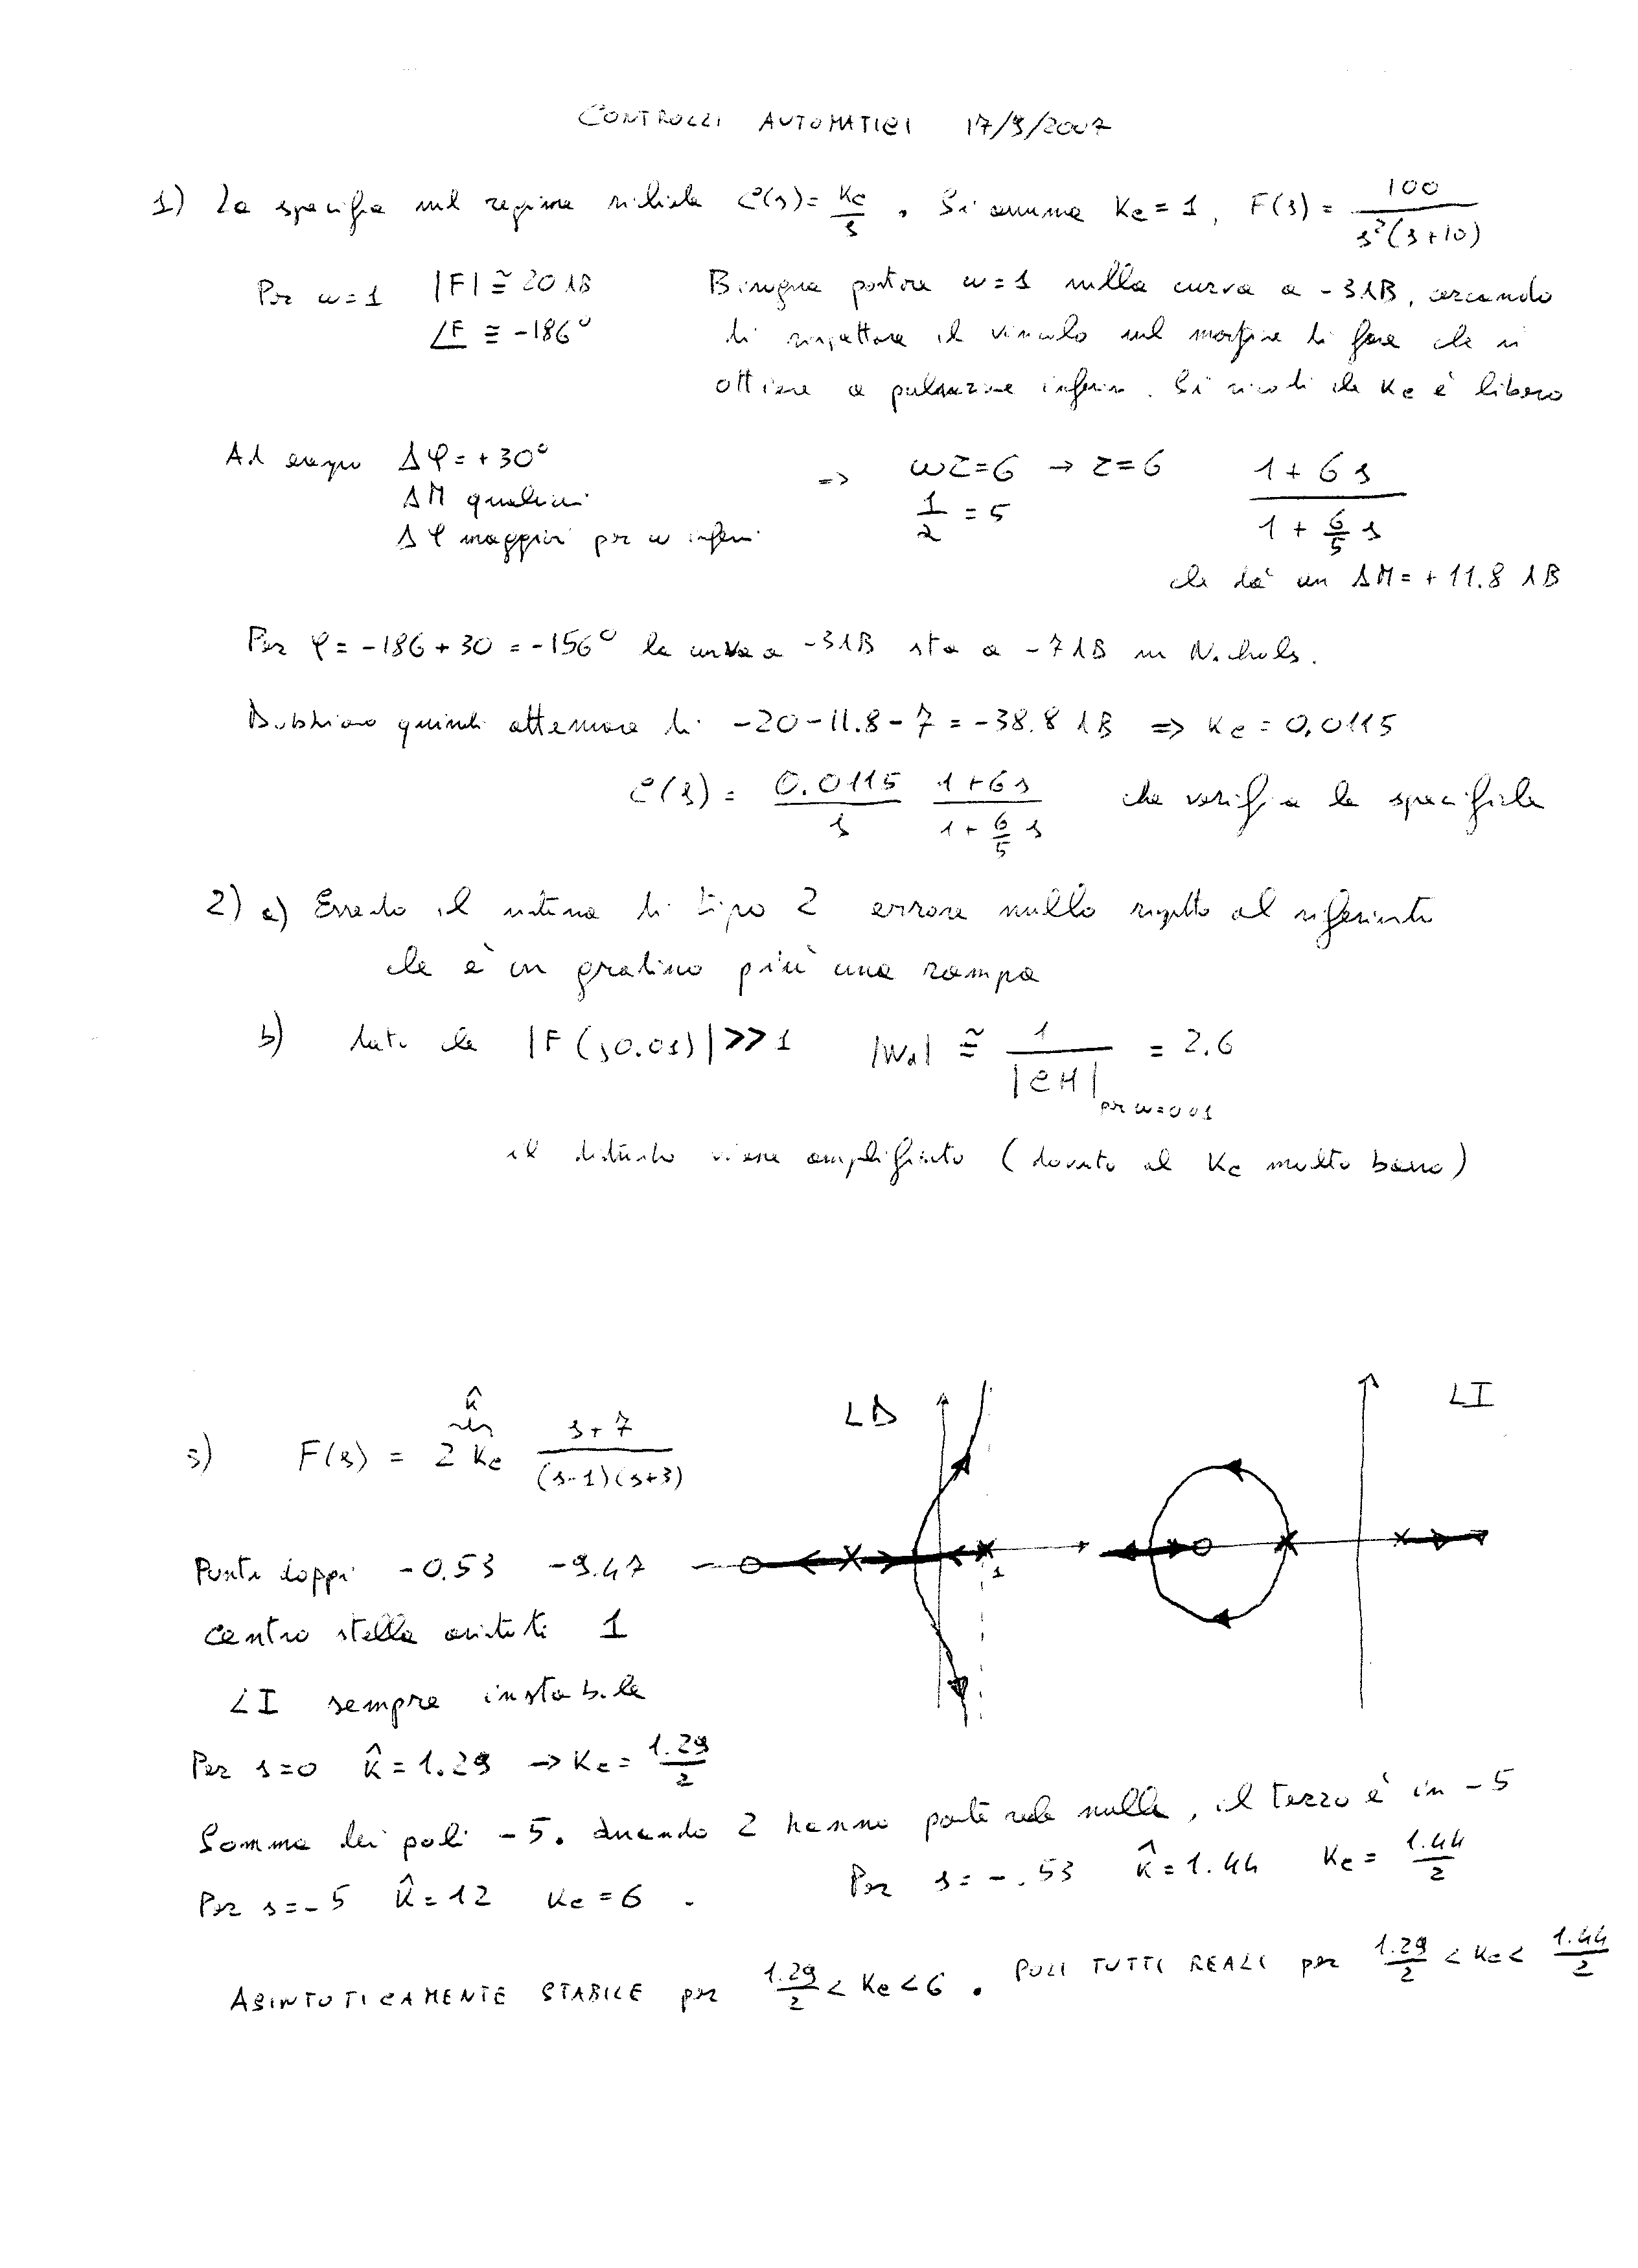 CONTROLLI AUTOMATICI 17/9/2007
1) La specifica sul regime richiede C(s) = Kc/s . Si assuma Kc = 1, F(s) = 100/(s²(s+10))
Per ω=1 |F| ≅ 20 dB Bisogna portare ω=1 sulla curva a -3dB, cercando
∠F ≅ -186° di rispettare il vincolo sul margine di fase che si
ottiene a pulsazione inferiore. Si ricordi che Kc è libero
Ad esempio Δφ = +30° => ωτ=6 → τ=6 (1+6s)/(1+6/5 s)
ΔM qualsiasi 1/2 = 5
Δφ maggiori per ω inferiori
che dà un ΔM = +11.8 dB
Per φ = -186+30 = -156° la curva a -3dB sta a -7dB su Nichols.
Dobbiamo quindi attenuare di -20-11.8-7 = -38.8 dB => Kc = 0,0115
C(s) = 0.0115/s (1+6s)/(1+6/5 s) che verifica le specifiche
2) a) Essendo il sistema di tipo 2 errore nullo rispetto al riferimento
che è un gradino più una rampa
b) dato che |F(j0.01)| >> 1 |Wd| ≅ 1/|CH| per ω=0.01 = 2.6
il disturbo viene amplificato (dovuto al Kc molto basso)
LD LI
3) F(s) = 2 Kc (s+7)/((s-1)(s+3)) K̂
1
Punti doppi -0.53 -9.47
centro stella asintoti 1
LI sempre instabile
Per s=0 K̂ = 1.29 → Kc = 1.29/2
Somma dei poli -5. Quando 2 hanno parte reale nulla, il terzo è in -5
Per s=-5 K̂ = 12 Kc = 6 . Per s = -.53 K̂ = 1.44 Kc = 1.44/2
ASINTOTICAMENTE STABILE per 1.29/2 < Kc < 6 . POLI TUTTI REALI per 1.29/2 < Kc < 1.44/2